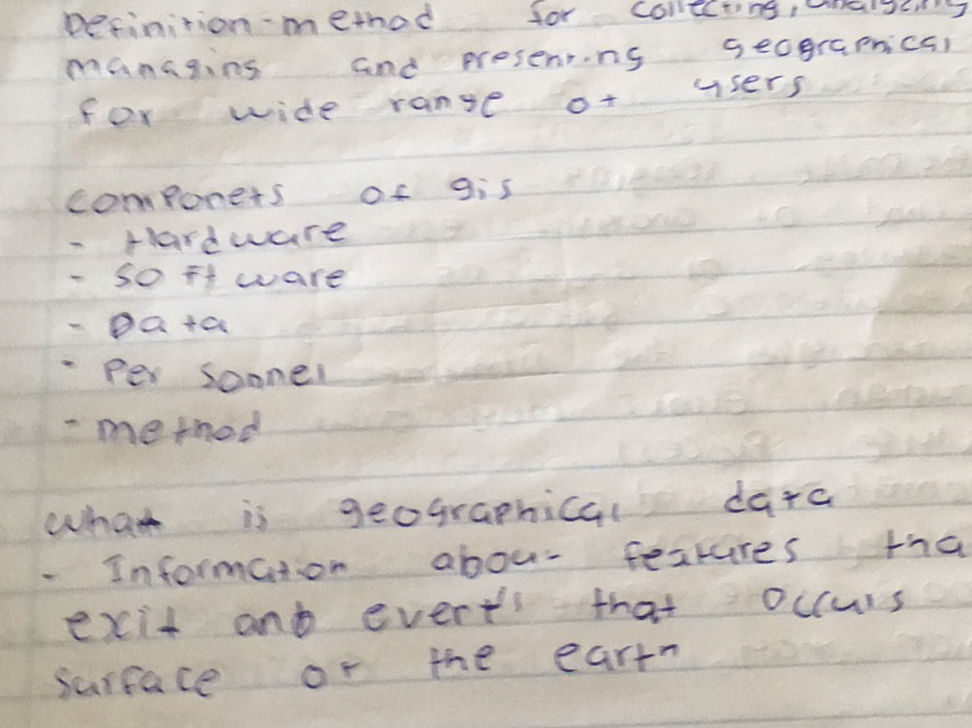 Definition-method for collecting, analyzing
managing and presenting geographical
for wide range of users
componets of gis
- Hardware
- software
- Data
- Personnel
- method
what is geographical data
- Information about features tha
exit and evert's that occurs
surface of the earth